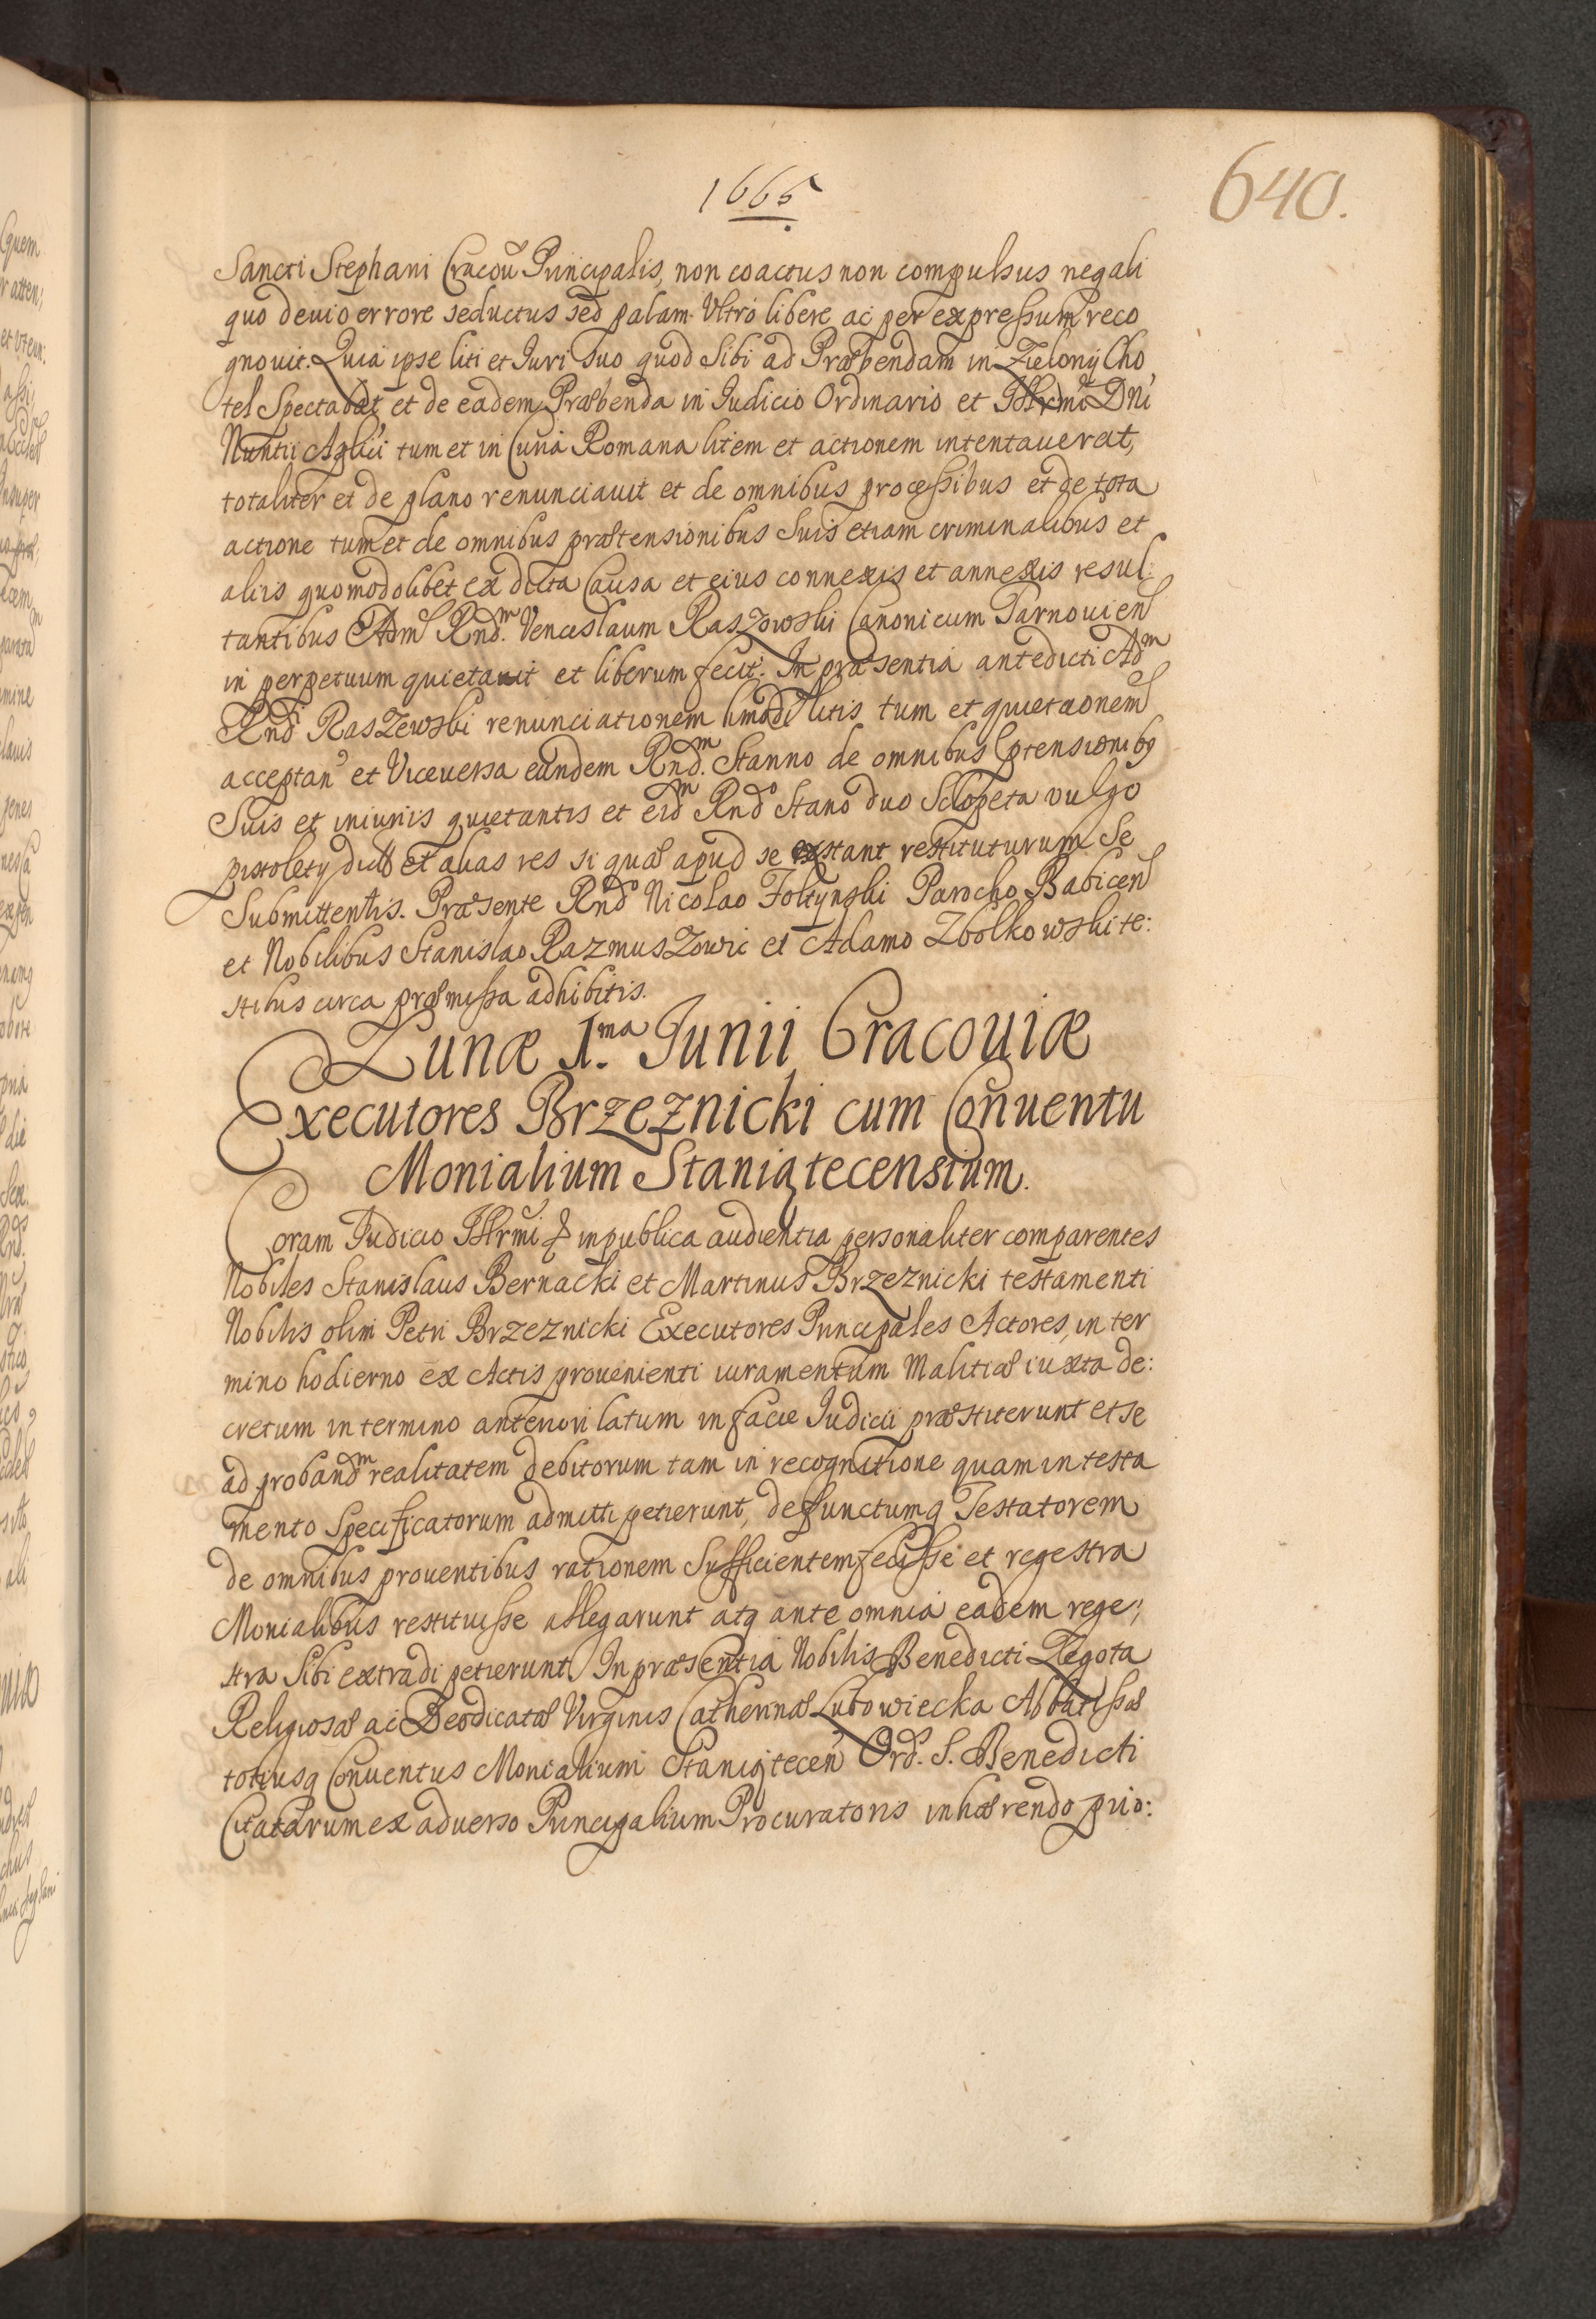 1665
640.
Sancti Stephani Cracoũ Principalis, non coactus non compulsus negali
quo deuio errore seductus sed palam Vltro libere ac per expressum reco
gnouit. Quia ipse liti et Iuri suo quod sibi ad Præbendam in Zielonÿ Cho
tel Spectabat et de eadem Præbenda in Iudicio Ordinario et Illrmi Dni
Nuntii Aplici tum et in Curia Romana litem et actionem intentauerat,
totaliter et de plano renunciauit et de omnibus processibus et de tota
actione tum et de omnibus prætensionibus Suis etiam criminalibus et
aliis quomodolibet ex dicta Causa et eius connexis et annexis resul:
tantibus Adm Rnd.m Venceslaum Raszowski Canonicum Tarnouien
in perpetuum quietauit et liberum fecit. In præsentia antedicti Adm
Rndi Raszewski renunciationem hmodi litis tum et quietaonem
acceptan et Viceuersa eundem Rnd.m Stanno de omnibus ptensionibg
Suis et iniuriis quietantis et eidm Rndo Stano duo Sclopeta vulgo
pistolety dict et alias res si quæ apud se exstant restituturum Se
Submittentis. Præsente Rndo Nicolao Foltynski Parocho Babicen
et Nobilibus Stanislao Razmuszowic et Adamo Zbolkowski te:
stibus circa præmissa adhibitis.
Lunæ 1.ma Junii Cracouiæ
Executores Brzeznicki cum Conuentu
Monialium Staniątecensium.
Coram Iudicio Illrmi & in publica audientia personaliter comparentes
Nobiles Stanislaus Bernacki et Martinus Brzeznicki testamenti
Nobilis olim Petri Brzeznicki Executores Principales Actores, in ter
mino hodierno ex Actis prouenienti iuramentum Malitiæ iuxta de:
cretum in termino anteriori latum in facie Iudicii præstiterunt et se
ad proband.m realitatem debitorum tam in recognitione quam in testa
mento Specificatorum admitti petierunt, defunctumq Testatorem
de omnibus prouentibus rationem Sufficientem fecisse et regestra
Monialibus restituisse allegarunt atq ante omnia eadem rege:
stra Sibi extradi petierunt. In præsentia Nobilis Benedicti Zegota
Religiosæ ac Deodicatæ Virginis Catherinæ Lubowiecka Abbatissæ
totiusq Conuentus Monialium Staniątecen Ord. S. Benedicti
Citatarum ex aduerso Principalium Procuratoris inhærendo prio: